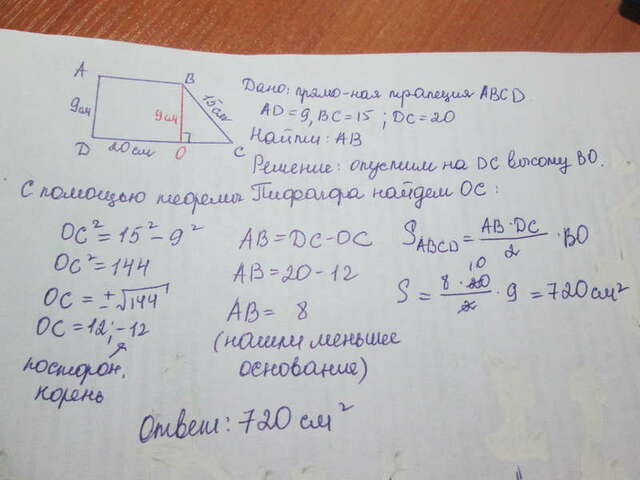 A
B
9см
9см
15см
D
20см
O
C
Дано: прямо-ная трапеция ABCD.
AD=9, BC=15; DC=20
Найти: AB
Решение: опустим на DC высоту BO.
С помощью теоремы Пифагора найдем OC:
OC²=15²-9²
OC²=144
OC=±√144
OC=12;-12
посторон.
корень
AB=DC-OC
AB=20-12
AB= 8
(нашли меньшее
основание)
S ABCD = AB·DC/2 ·BO
S = 8·20/2 · 9 = 720см²
10
Ответ: 720 см²